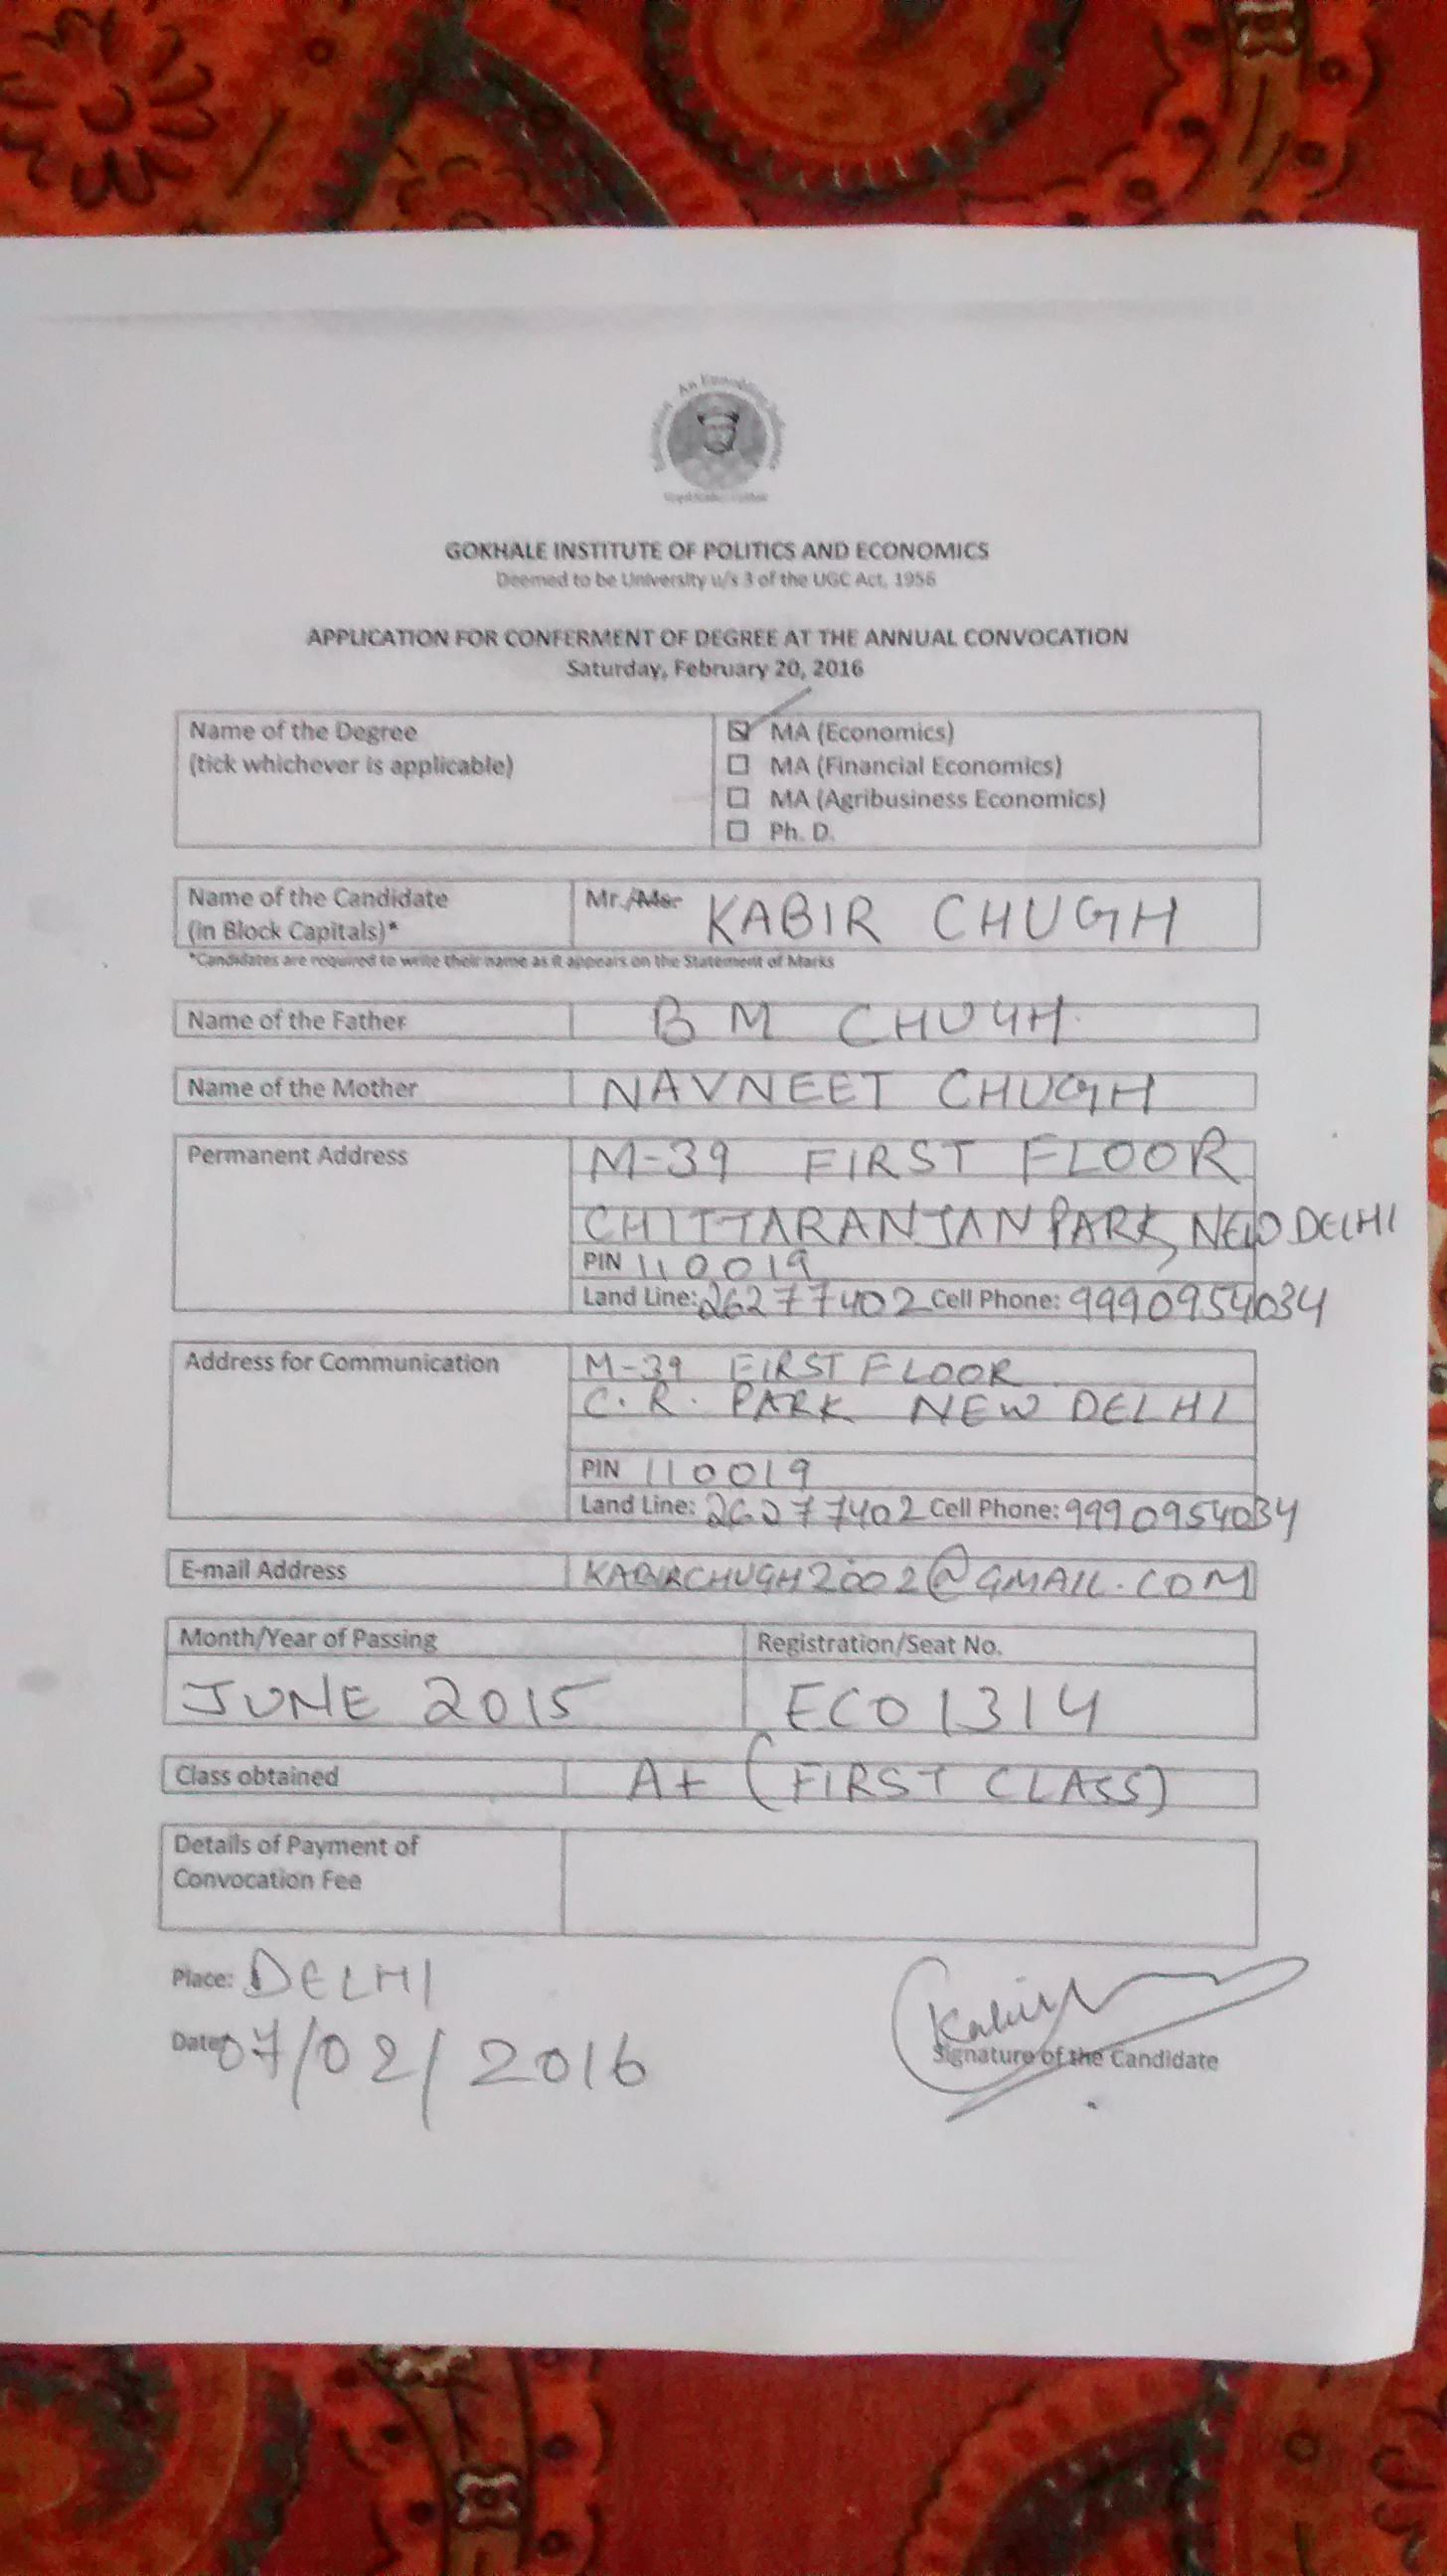 GOKHALE INSTITUTE OF POLITICS AND ECONOMICS
Deemed to be University u/s 3 of the UGC Act, 1956
APPLICATION FOR CONFERMENT OF DEGREE AT THE ANNUAL CONVOCATION
Saturday, February 20, 2016
Name of the Degree
(tick whichever is applicable)
MA (Economics)
MA (Financial Economics)
MA (Agribusiness Economics)
Ph. D.
Name of the Candidate
(in Block Capitals)*
Mr./Ms. KABIR CHUGH
*Candidates are required to write their name as it appears on the Statement of Marks
Name of the Father B M CHUGH
Name of the Mother NAVNEET CHUGH
Permanent Address M-39 FIRST FLOOR
CHITTARANJAN PARK, NEW DELHI
PIN 110019
Land Line: 26277402 Cell Phone: 9990954034
Address for Communication M-39 FIRST FLOOR
C. R. PARK NEW DELHI
PIN 110019
Land Line: 26277402 Cell Phone: 9990954034
E-mail Address KABIRCHUGH2002@GMAIL.COM
Month/Year of Passing Registration/Seat No.
JUNE 2015 ECO1314
Class obtained A+ (FIRST CLASS)
Details of Payment of
Convocation Fee
Place: DELHI
Date: 07/02/2016
Kabir
Signature of the Candidate